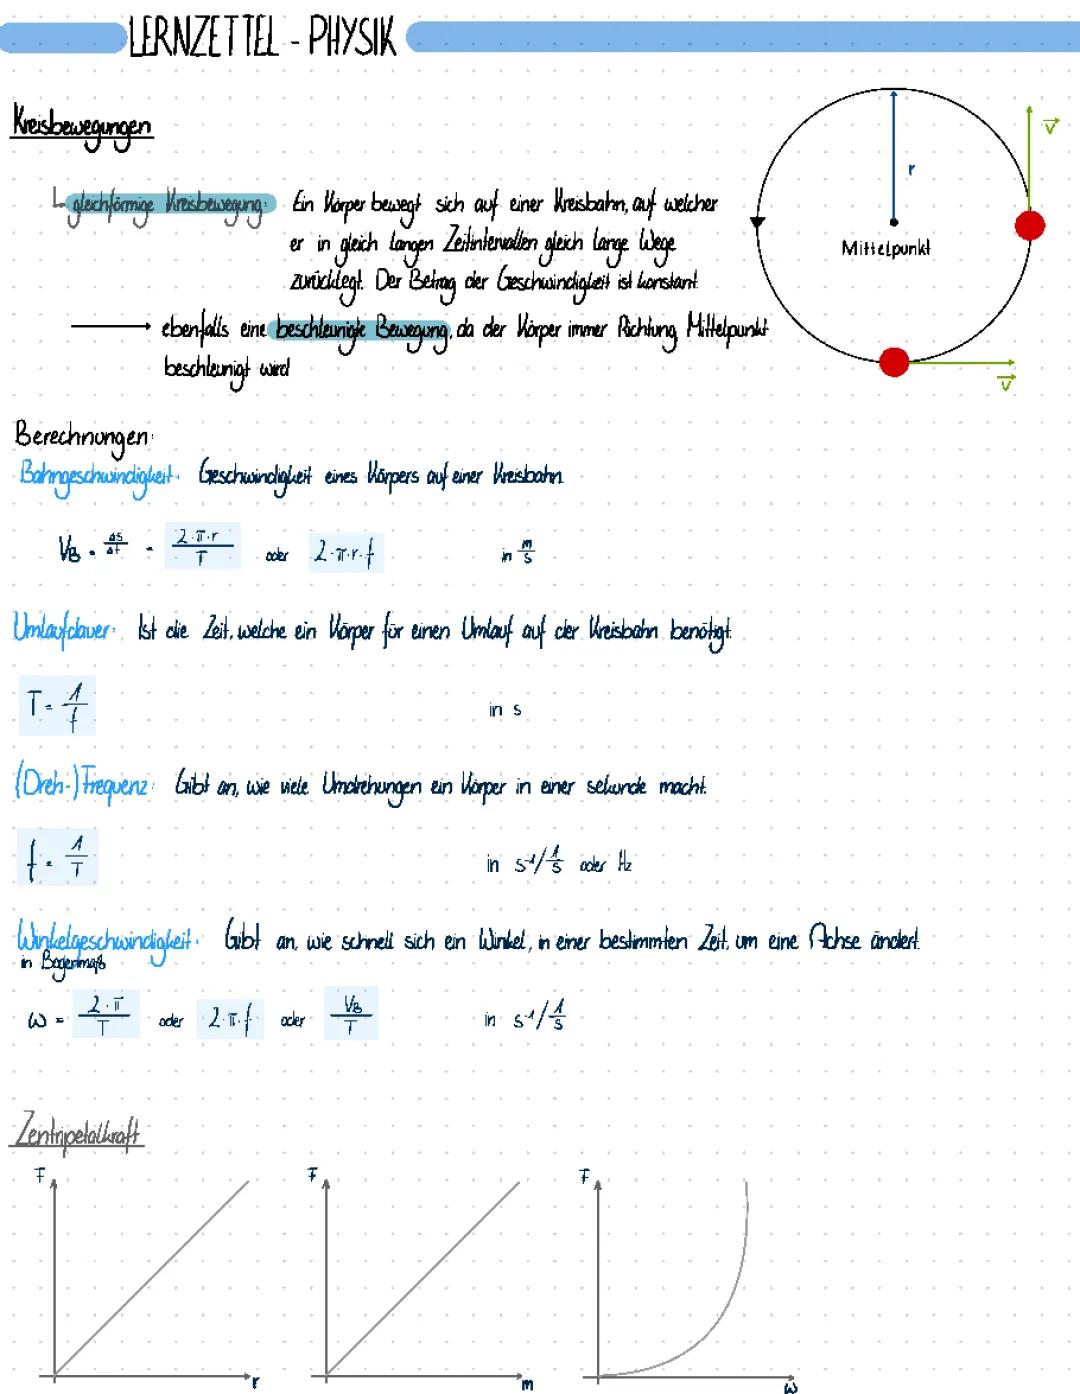 LERNZETTEL - PHYSIK
Kreisbewegungen
gleichförmige Kreisbewegung: Ein Körper bewegt sich auf einer Kreisbahn, auf welcher
er in gleich langen Zeitintervallen gleich lange Wege
zurücklegt. Der Betrag der Geschwindigkeit ist konstant.
→ ebenfalls eine beschleunigte Bewegung, da der Körper immer Richtung Mittelpunkt
beschleunigt wird
r
Mittelpunkt
v
v
Berechnungen:
Bahngeschwindigkeit: Geschwindigkeit eines Körpers auf einer Kreisbahn.
VB = Δs/Δt = 2·π·r/T oder 2·π·r·f in m/s
Umlaufdauer: Ist die Zeit, welche ein Körper für einen Umlauf auf der Kreisbahn benötigt.
T = 1/f in s
(Dreh-)Frequenz: Gibt an, wie viele Umdrehungen ein Körper in einer sekunde macht.
f = 1/T in s⁻¹/ 1/s oder Hz
Winkelgeschwindigkeit: Gibt an, wie schnell sich ein Winkel, in einer bestimmten Zeit, um eine Achse ändert.
in Bogenmaß
ω = 2·π/T oder 2·π·f oder VB/T in s⁻¹/ 1/s
Zentripetalkraft
F F F
r m ω